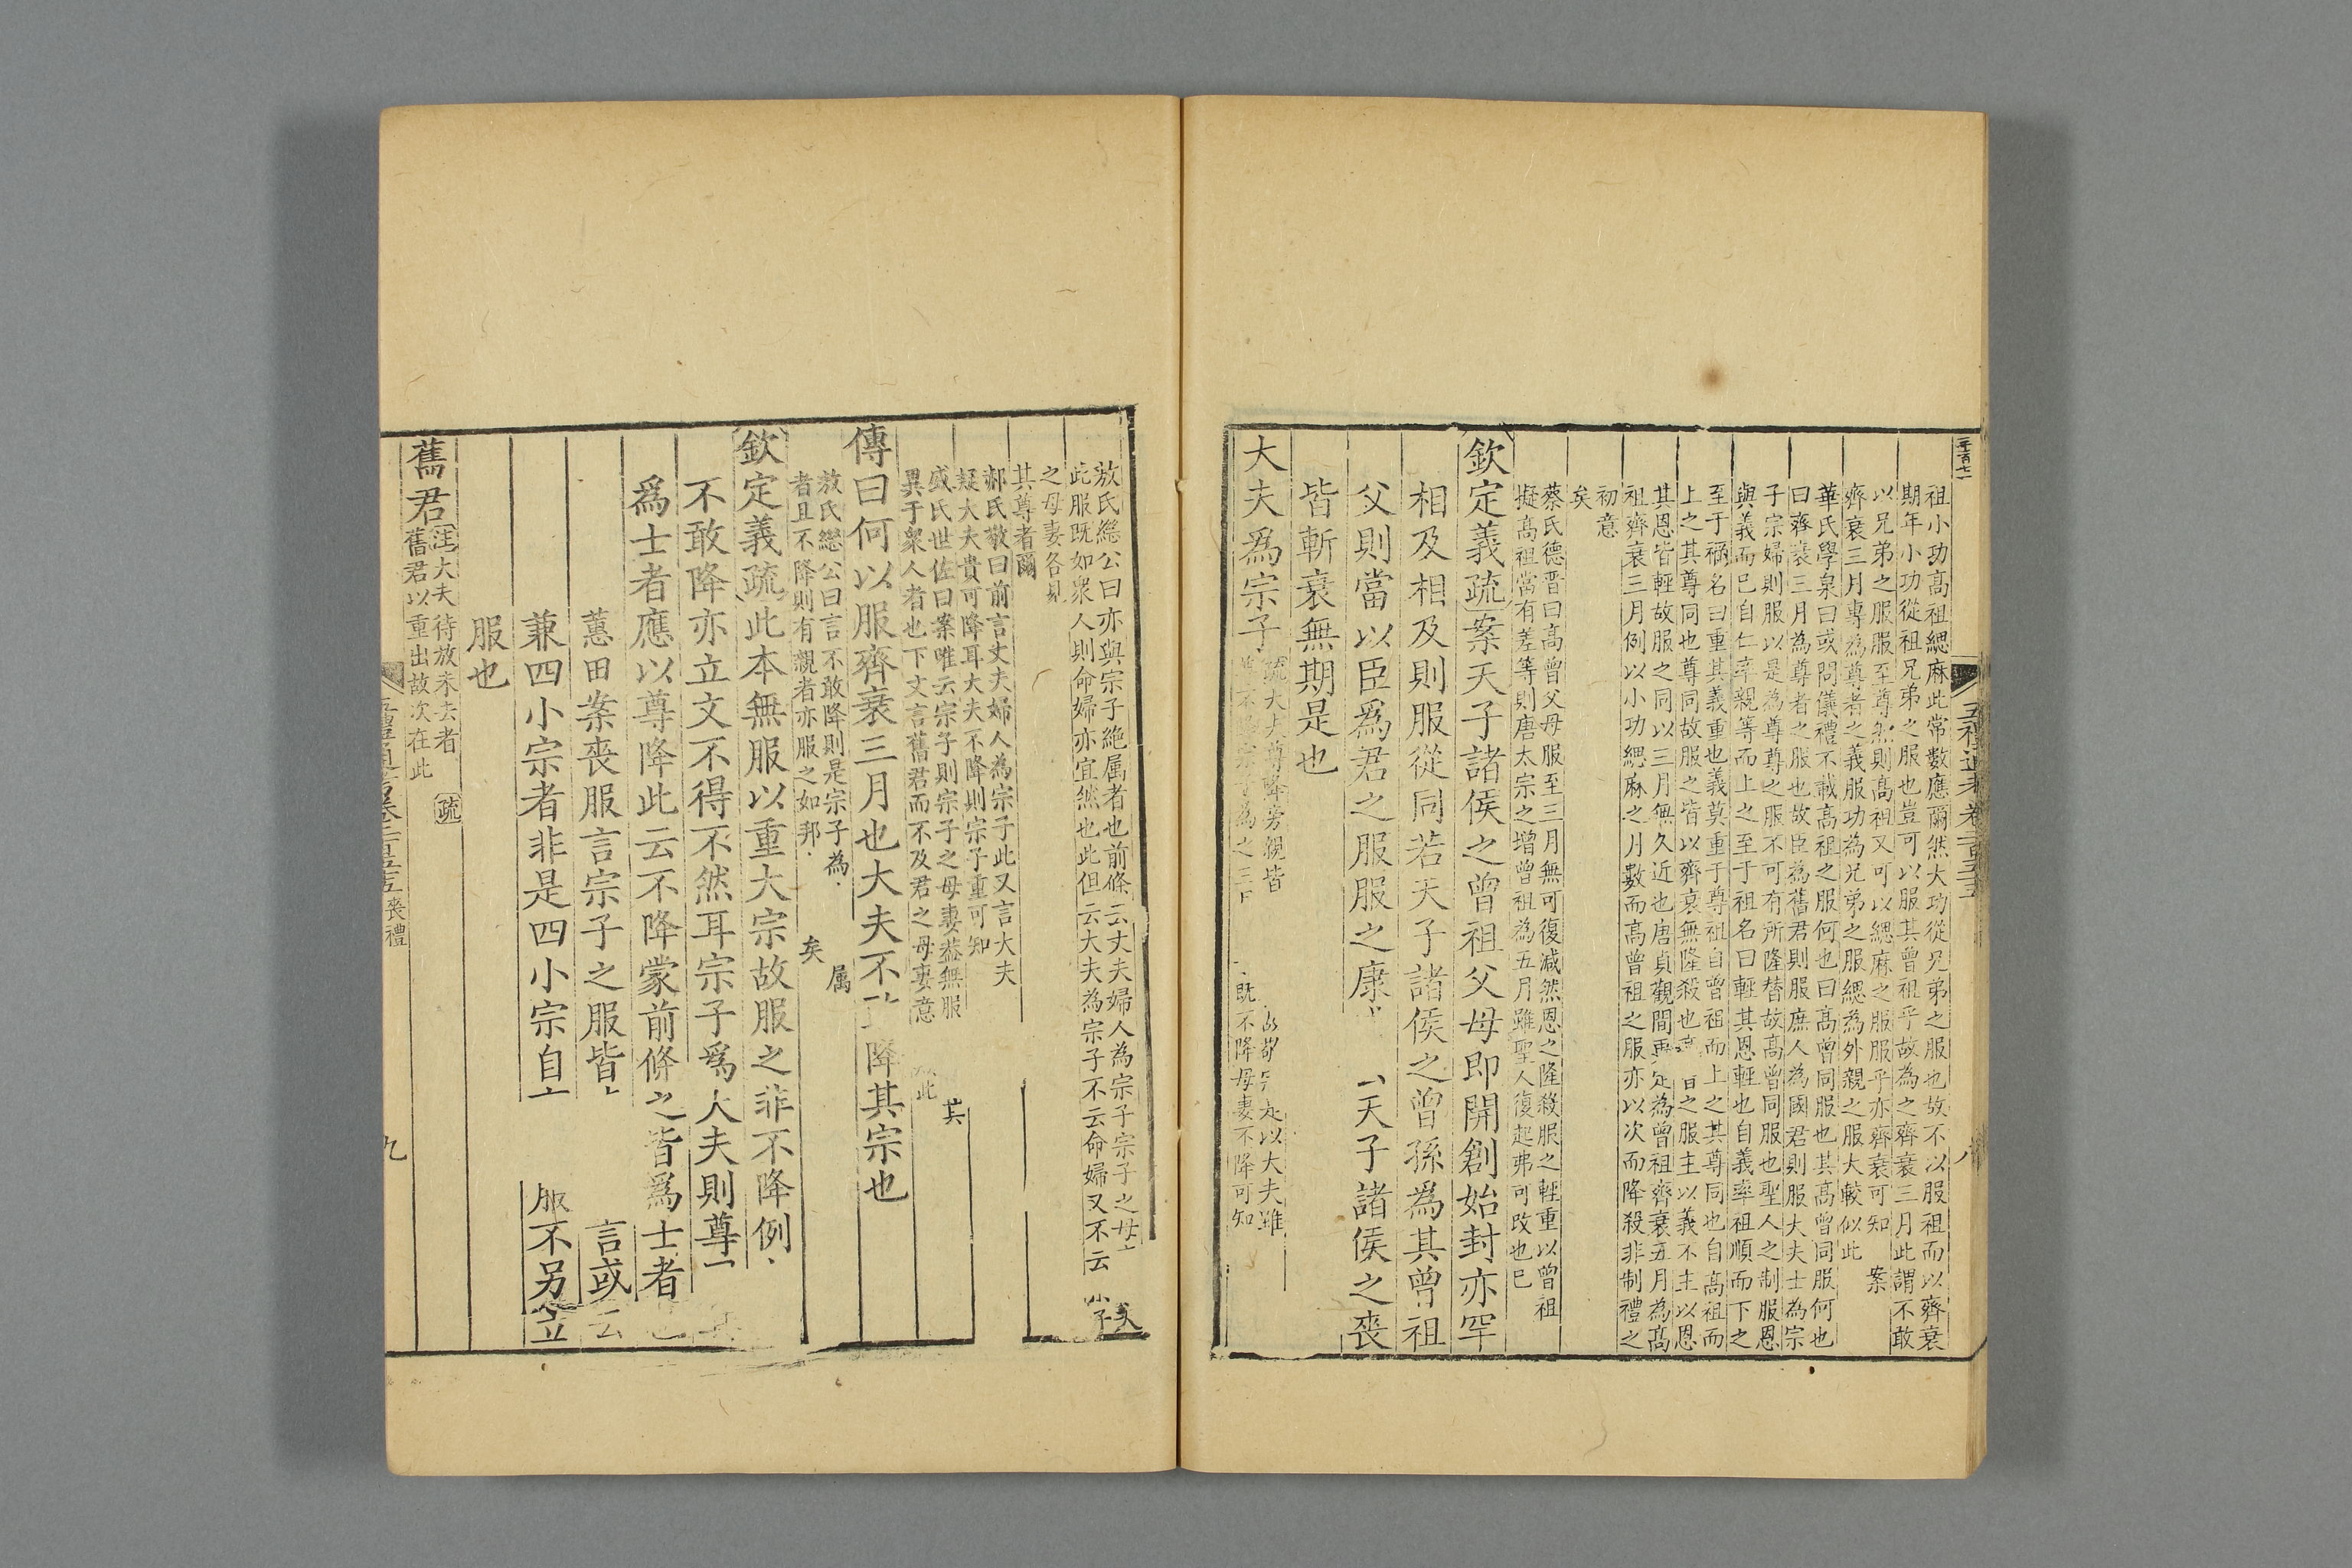 祖小功高祖緦麻此常數應爾然大功從兄弟之服也故不以服祖而以齊衰
期年小功從祖兄弟之服也豈可以服其曾祖乎故為之齊衰三月此謂不敢
以兄弟之服服至尊然則高祖又可以緦麻之服服乎亦齊衰可知 案
齊衰三月專為尊者之義服功為兄弟之服緦為外親之服大較似此
華氏學泉曰或問儀禮不載高祖之服何也曰高曾同服也其高曾同服何也
曰齊衰三月為尊者之服也故臣為舊君則服庶人為國君則服大夫士為宗
子宗婦則服以是為尊尊之服不可有所隆替故高曾同服也聖人之制服恩
與義而已自仁率親等而上之至于祖名曰輕其恩輕也自義率祖順而下之
至于禰名曰重其義重也義莫重于尊祖自曾祖而上之其尊同也自高祖而
上之其尊同也尊同故服之皆以齊衰無隆殺也高曾之服主以義不主以恩
其恩皆輕故服之同以三月無久近也唐貞觀間更定為曾祖齊衰五月為高
祖齊衰三月例以小功緦麻之月數而高曾祖之服亦以次而降殺非制禮之
初意
矣
蔡氏德晋曰高曾父母服至三月無可復減然恩之隆殺服之輕重以曾祖
擬高祖當有差等則唐太宗之增曾祖為五月雖聖人復起弗可改也已
欽定義疏案天子諸侯之曾祖父母即開創始封亦罕
相及相及則服從同若天子諸侯之曾孫為其曾祖
父則當以臣為君之服服之康天子諸侯之喪
皆斬衰無期是也
大夫為宗子
疏大夫尊降旁親皆
宗以大夫雖
既不降母妻不降可知
五禮通考卷二百五十五
八
敖氏繼公曰亦與宗子絶属者也前條云丈夫婦人為宗子宗子之母
此服既如衆人則命婦亦宜然也此但云大夫為宗子不云命婦又不云
之母妻各見
其尊者爾
郝氏敬曰前言丈夫婦人為宗子此又言大夫
疑大夫貴可降耳大夫不降則宗子重可知
盛氏世佐曰案唯云宗子則宗子之母妻葢無服
異于衆人者也下文言舊君而不及君之母妻意
其
此
傳曰何以服齊衰三月也大夫不降其宗也
敖氏繼公曰言不敢降則是宗子為属
者且不降則有親者亦服之如邦矣
欽定義疏此本無服以重大宗故服之非不降例
不敢降亦立文不得不然耳宗子為大夫則尊
為士者應以尊降此云不降蒙前條之皆為士者
蕙田案喪服言宗子之服皆言或云
兼四小宗者非是四小宗自服不另立
服也
舊君
注大夫待放未去者疏
舊君以重出故次在此
五禮通考卷二百五十五喪禮
九